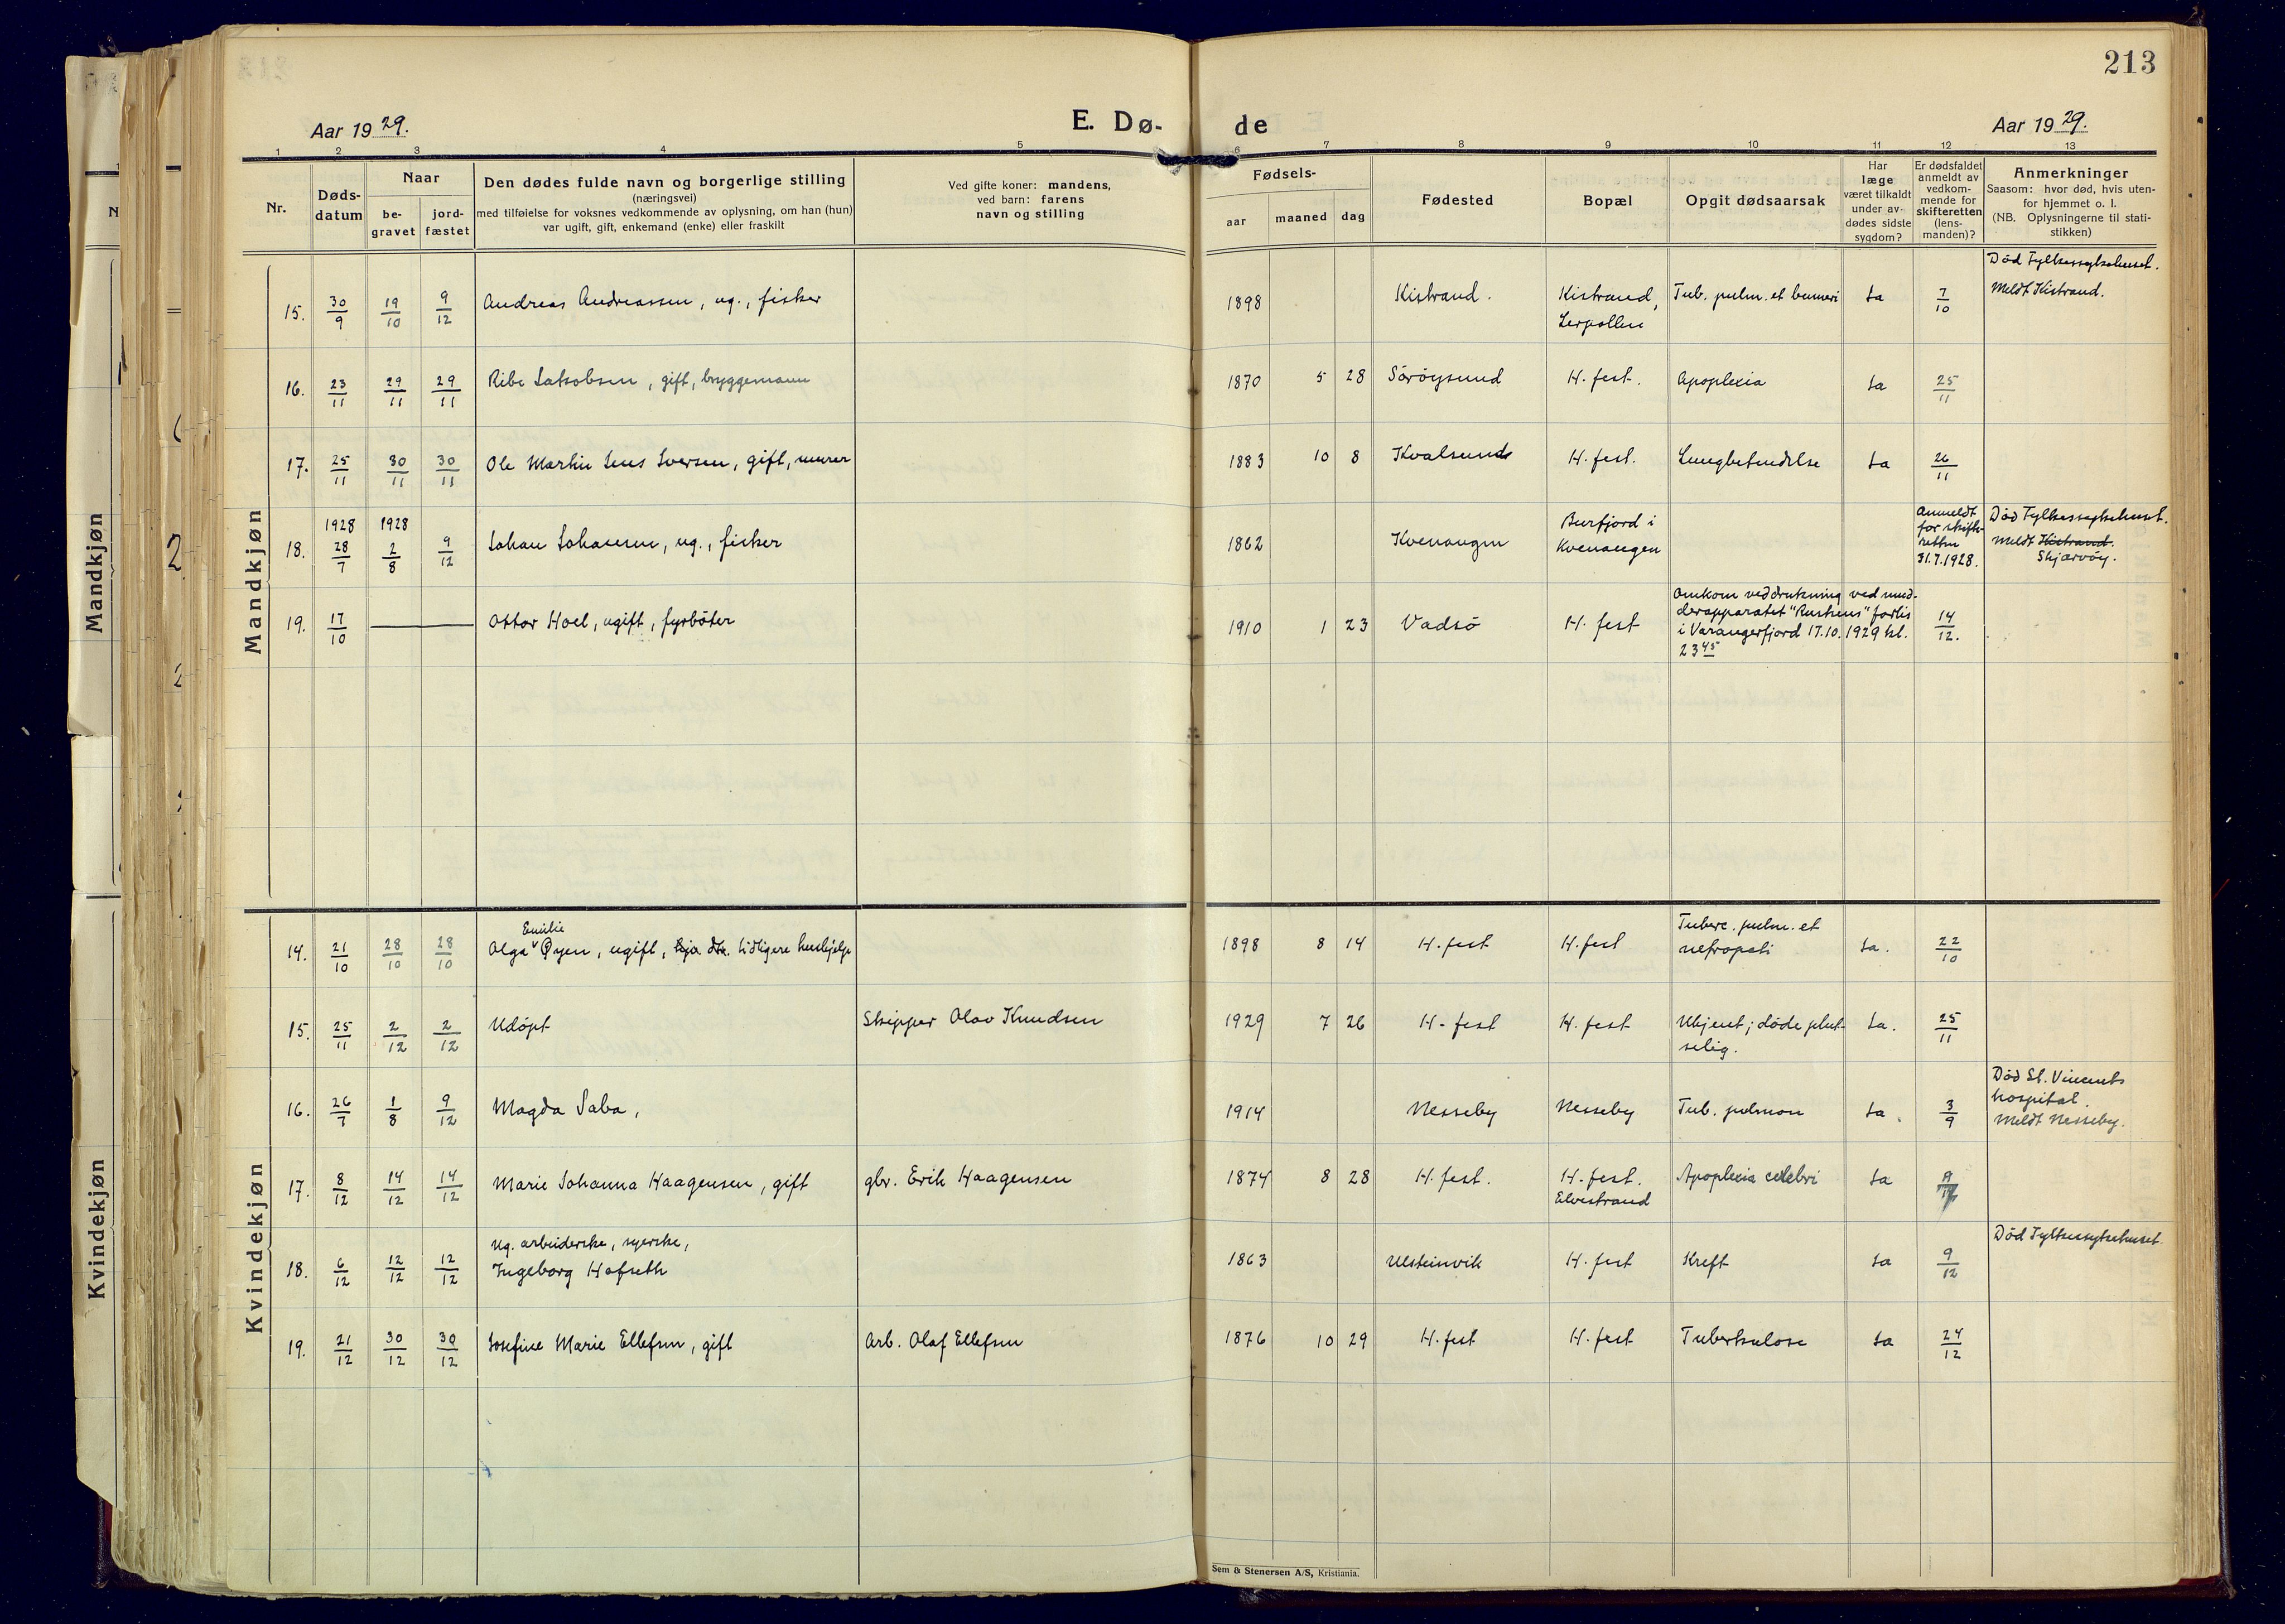 213
Aar 1929.
E. Dø-
de
Aar 1929.
1 2 3 4 5 6 7 8 9 10 11 12 13
Nr.
Døds-
datum
Naar
be-
gravet
jord-
fæstet
Den dødes fulde navn og borgerlige stilling
(næringsvei)
med tilføielse for voksnes vedkommende av oplysning, om han (hun)
var ugift, gift, enkemand (enke) eller fraskilt
Ved gifte koner: mandens,
ved barn: farens
navn og stilling
Fødsels-
aar maaned dag
Fødested
Bopæl
Opgit dødsaarsak
Har
læge
været tilkaldt
under av-
dødes sidste
sygdom?
Er dødsfaldet
anmeldt av
vedkom-
mende for
skifteretten
(lens-
manden)?
Anmerkninger
Saasom: hvor død, hvis uten-
for hjemmet o. l.
(NB. Oplysningerne til stati-
stikken)
Mandkjøn
Mandkjøn
15. 30/9 19/10 9/12 Andreas Andreassen, ug., fisker 1898 Kistrand. Kistrand, Tub. pulm. et humeri Ja 7/10 Død Fylkessykehuset.
Lerpollen Meldt Kistrand.
16. 23/11 29/11 29/11 Ribe Jakobsen, gift, bryggemann 1870 5 28 Sörøysund H. fest. Apoplexia Ja 25/11
17. 25/11 30/11 30/11 Ole Martin Jens Iversen, gift, murer 1883 10 8 Kvalsund H. fest. Lungbetendelse Ja 26/11
18. 1928 28/7 1928 2/8 9/12 Johan Johansen, ug., fisker 1862 Kvenangen Burfjord i
Kvenangen
Anmeldt
for skifte-
retten
31.7.1928.
Død Fylkessykehuset.
Meldt Kistrand.
Skjærvöy.
19. 17/10 — Ottar Hoel, ugift, fyrböter 1910 1 23 Vadsö H. fest Omkom ved drukning ved mud-
derapparatet "Ruskens" forlis
i Varangerfjord 17.10.1929 kl.
23 45
14/12.
Kvindekjøn
Kvindekjøn
14. 21/10 28/10 28/10 Emilie
Olga Øyen, ugift, tidligere hushjelp 1898 8 14 H. fest H. fest Tuberc. pulm. et
nefropati Ja. 22/10
15. 25/11 2/12 2/12 Udöpt Skipper Olav Knudsen 1929 7 26 H. fest H. fest Ukjent; döde plut-
selig. Ja. 25/11
16. 26/7 1/8 9/12 Magda Saba, 1914 Nesseby Nesseby Tub. pulmon Ja. 3/9 Død St. Vincents
hospital.
Meldt Nesseby.
17. 8/12 14/12 14/12 Marie Johanna Haagensen, gift gbr. Erik Haagensen 1874 8 28 H. fest. H. fest.
Elvestrand Apoplexia celebri Ja 9/12
18. 6/12 12/12 12/12 Ug. arbeiderske, syerske,
Ingeborg Hofseth 1863 Ulsteinvik H. fest Kreft Ja 9/12 Død Fylkessykehuset
19. 21/12 30/12 30/12 Josefine Marie Ellefsen, gift Arb. Olaf Ellefsen 1876 10 29 H. fest H. fest Tuberkulose Ja 24/12
Sem & Stenersen A/S, Kristiania.